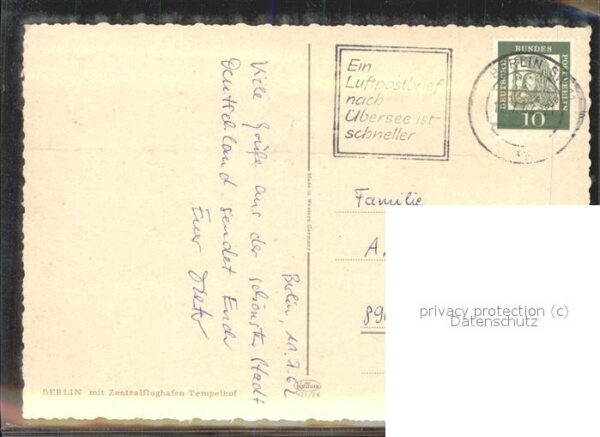 Berlin, 11.7.62
Viele Grüße aus der schönsten Stadt
Deutschland sendet Euch
Euer Dieter
Ein
Luftpostbrief
nach
Übersee ist
schneller
DEUTSCHE BUNDESPOST BERLIN
10
BERLIN
Made in Western Germany
Familie
A.
privacy protection (c)
Datenschutz
BERLIN mit Zentralflughafen Tempelhof
Krüger